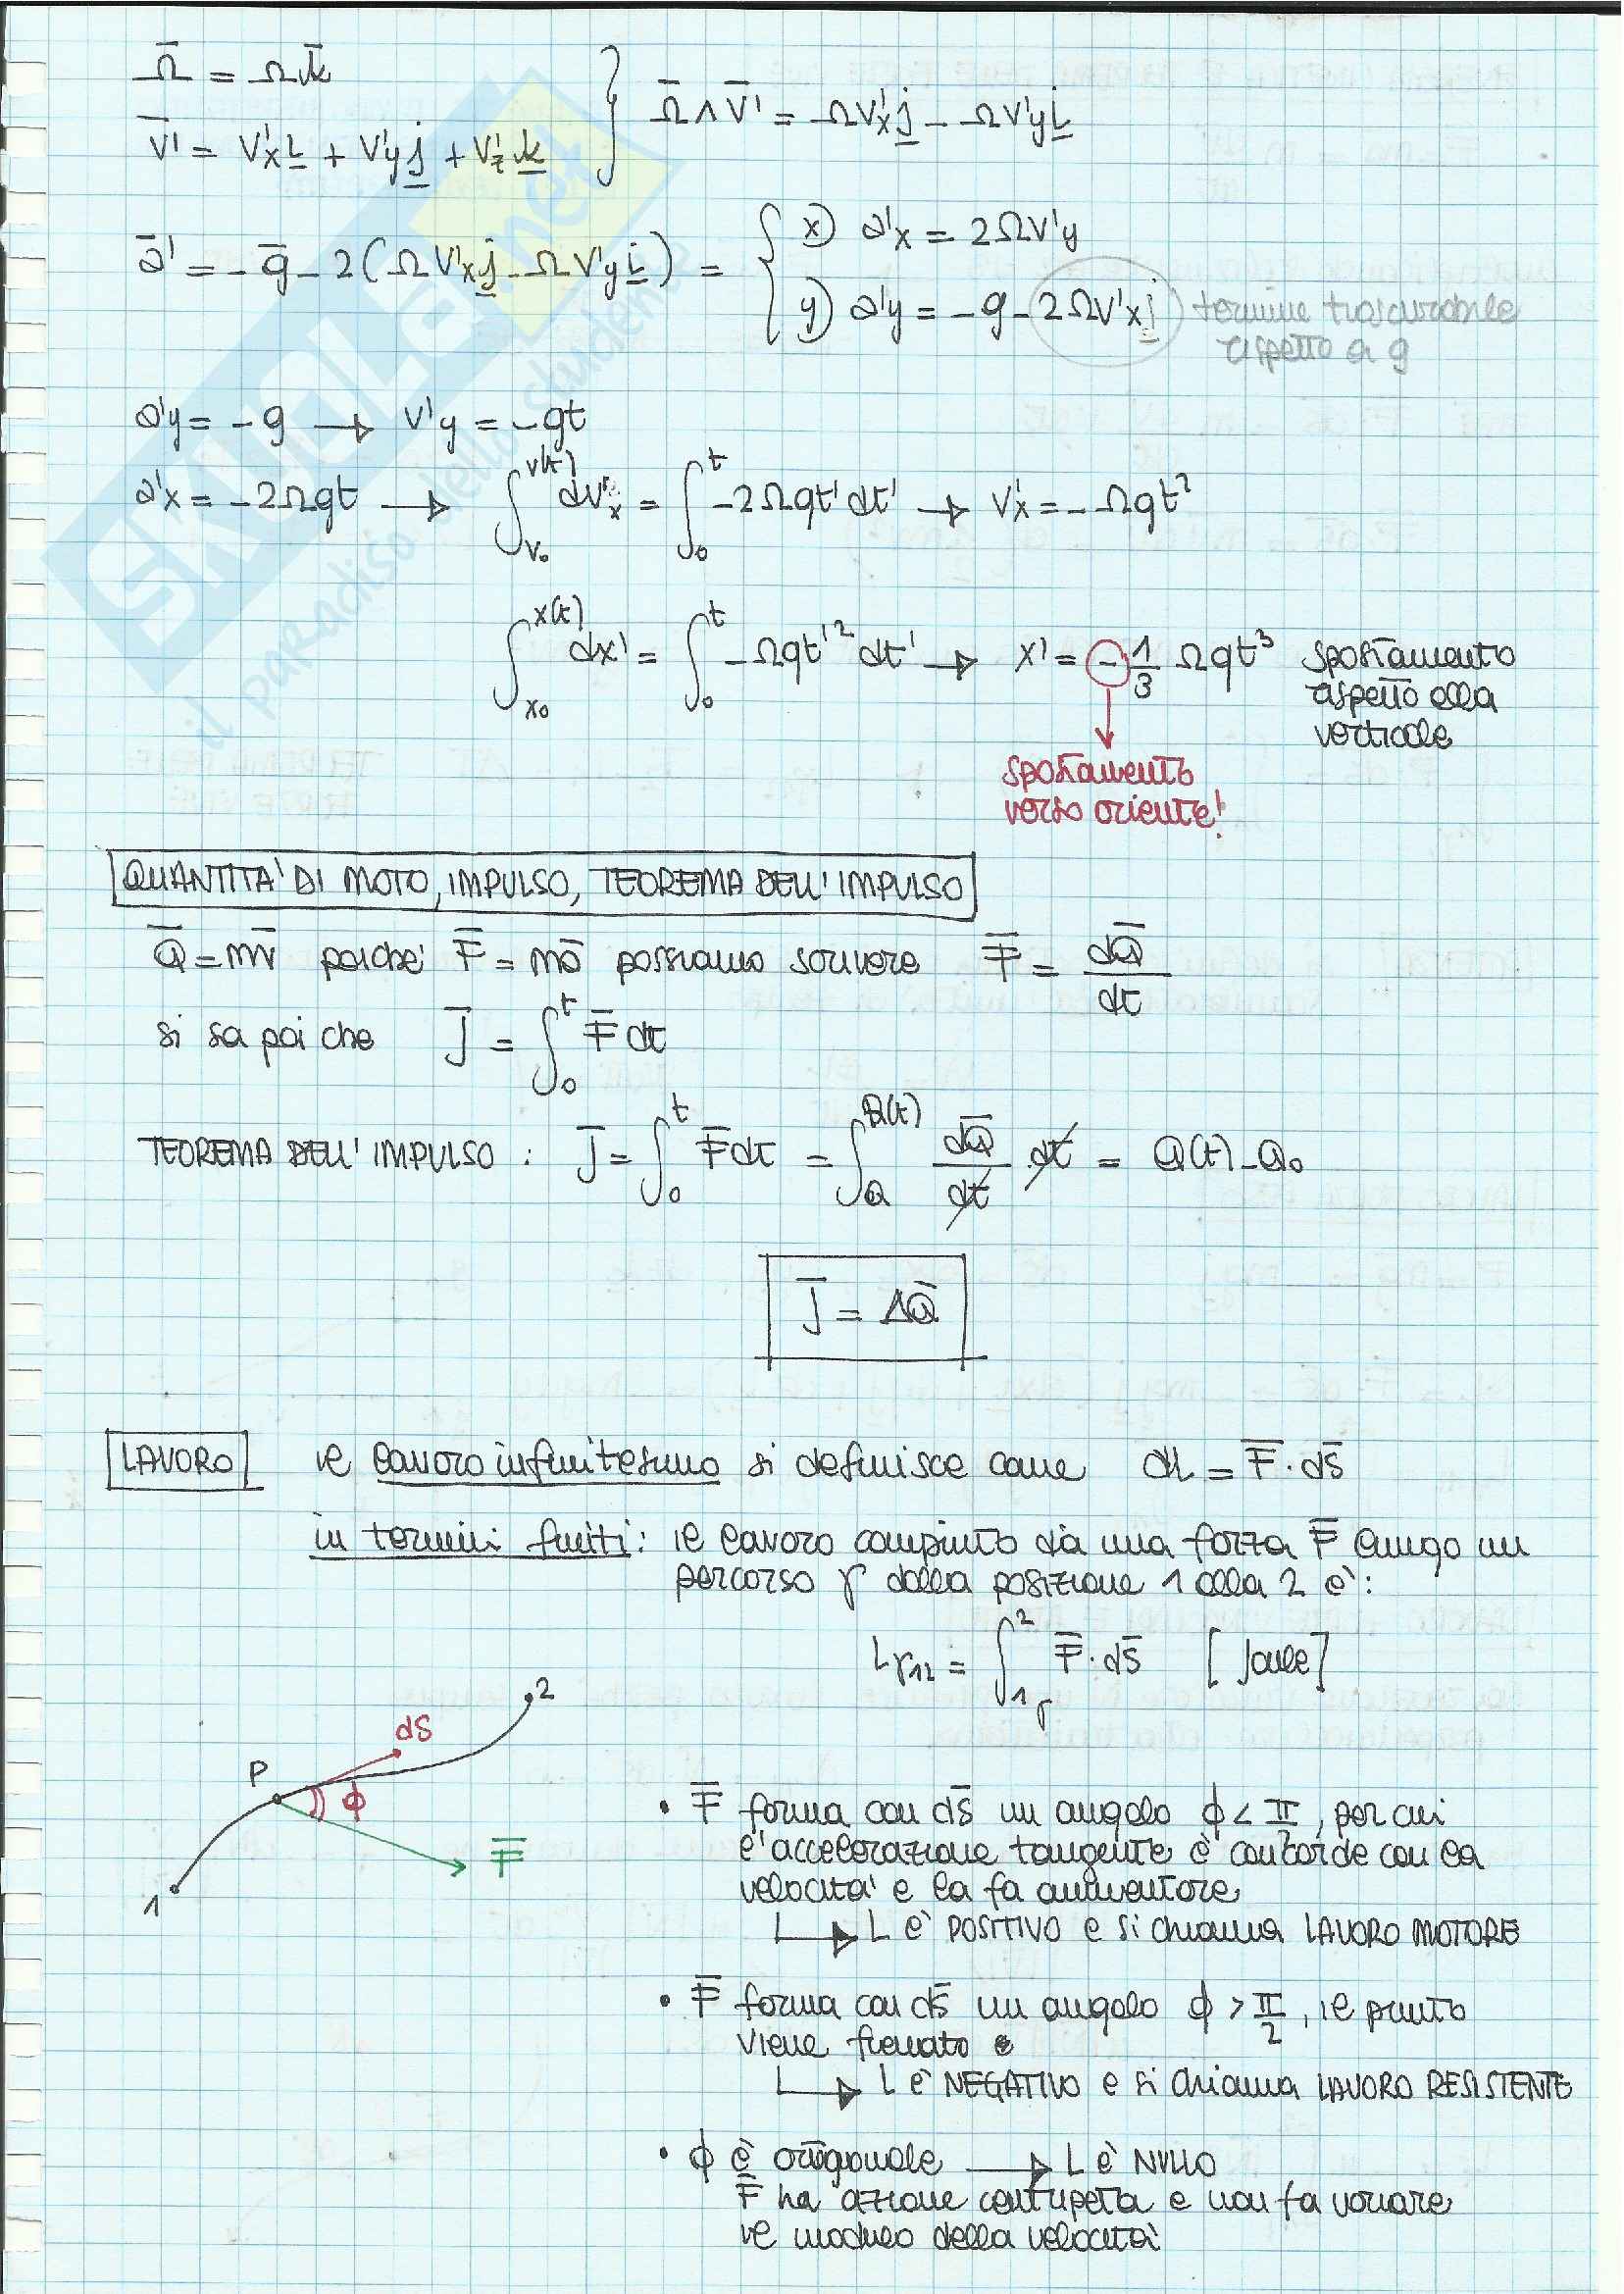 Ω̄ = Ωk̄
V̄' = V'x i + V'y j + V'z k } Ω̄ ∧ V̄' = ΩV'x j - ΩV'y i
ā' = -ḡ - 2(ΩV'x j - ΩV'y i) = { x) a'x = 2ΩV'y
y) a'y = -g - 2ΩV'x j termine trascurabile
rispetto a g
a'y = -g → V'y = -gt
a'x = -2Ωgt → ∫_{V₀}^{V(t)} dV'x = ∫₀ᵗ -2Ωgt' dt' → V'x = -Ωgt²
∫_{x₀}^{x(t)} dx' = ∫₀ᵗ -Ωgt'² dt' → x' = - 1/3 Ωgt³ spostamento
rispetto alla
verticale
spostamento
verso oriente!
QUANTITA' DI MOTO, IMPULSO, TEOREMA DELL'IMPULSO
Q̄ = mv̄ poiche' F̄ = mā possiamo scrivere F̄ = dQ̄/dt
si sa poi che J̄ = ∫₀ᵗ F̄ dt
TEOREMA DELL'IMPULSO : J̄ = ∫₀ᵗ F̄ dt = ∫_Q^{Q(t)} dQ̄/dt · dt = Q(t) - Q₀
J̄ = ΔQ̄
LAVORO il lavoro infinitesimo si definisce come dL = F̄ · ds̄
in termini finiti: il lavoro compiuto da una forza F̄ lungo un
percorso γ dalla posizione 1 alla 2 e':
Lγ12 = ∫_{1γ}^{2} F̄ · ds̄ [Joule]
2
ds
P
ϕ
F̄
1
• F̄ forma con ds̄ un angolo ϕ < π, per cui
l'accelerazione tangente è concorde con la
velocita' e la fa aumentare
L è POSITIVO e si chiama LAVORO MOTORE
• F̄ forma con ds̄ un angolo ϕ > π/2, il punto
viene frenato e
L e' NEGATIVO e si chiama LAVORO RESISTENTE
• ϕ è ortogonale → L e' NULLO
F̄ ha azione centripeta e non fa variare
il modulo della velocita'
SKUOLA.net
il paradiso dello studente